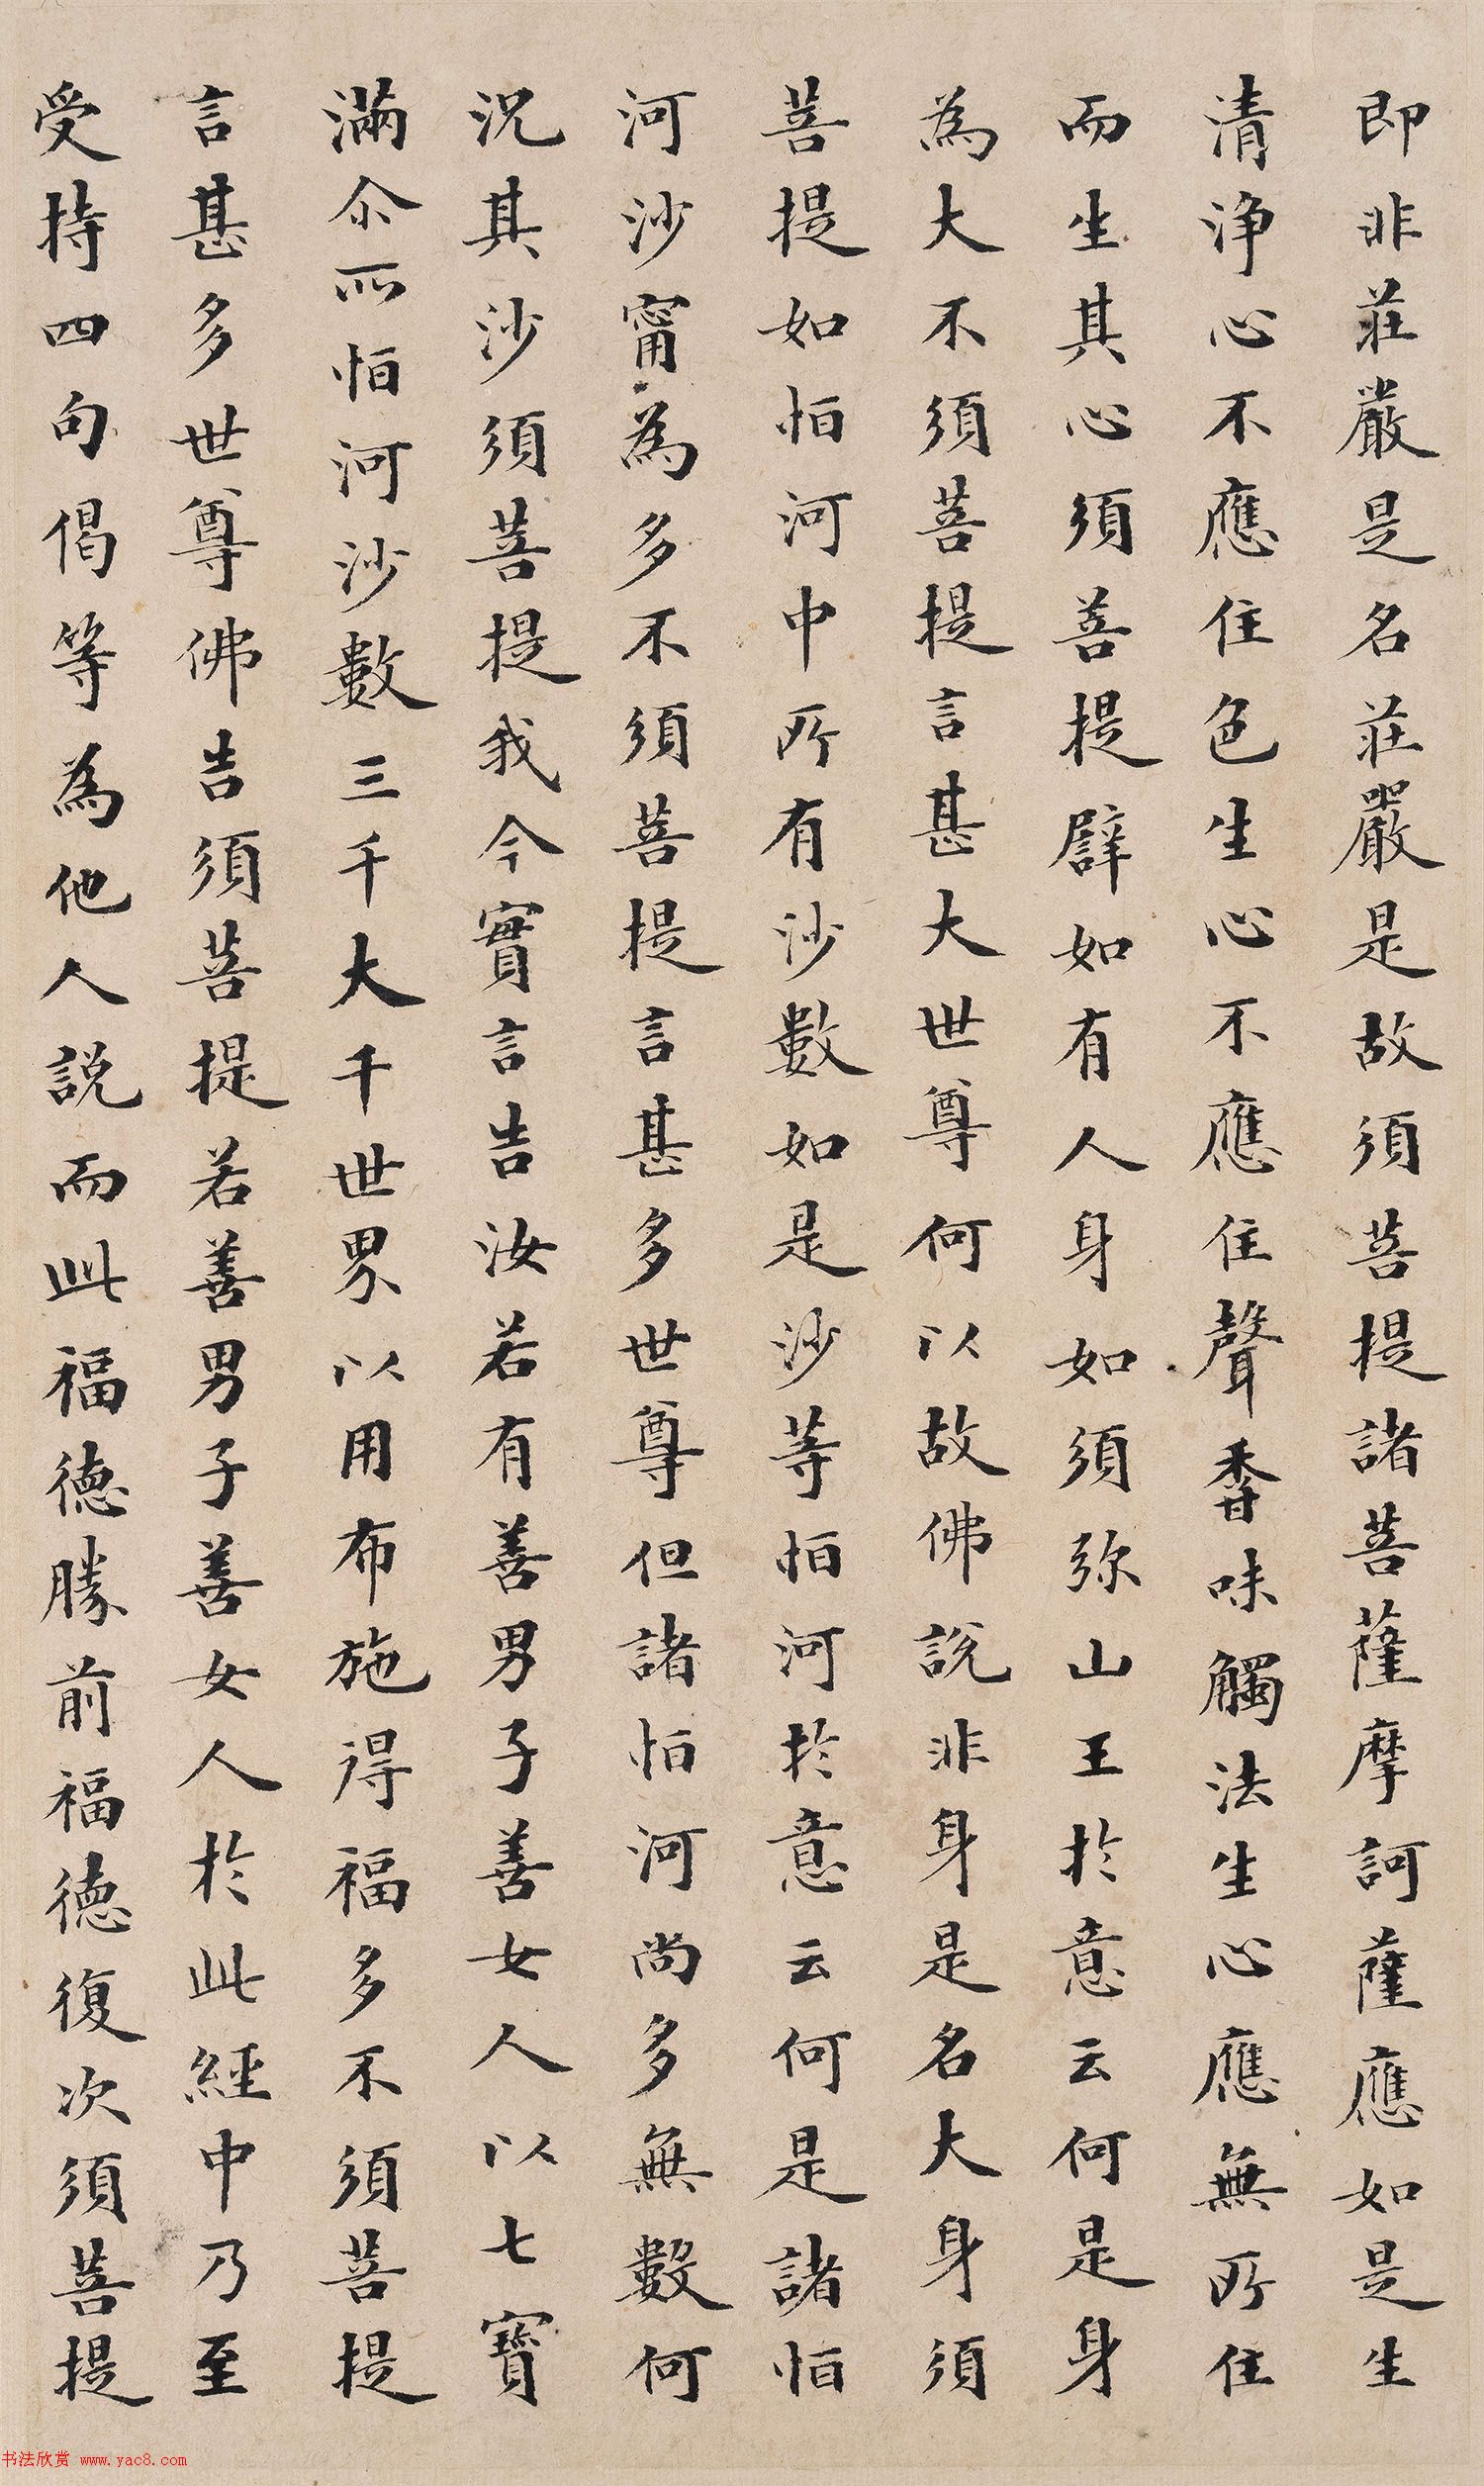 即非莊嚴是名莊嚴是故須菩提諸菩薩摩訶薩應如是生
清淨心不應住色生心不應住聲香味觸法生心應無所住
而生其心須菩提譬如有人身如須弥山王於意云何是身
為大不須菩提言甚大世尊何以故佛說非身是名大身須
菩提如恒河中所有沙數如是沙等恒河於意云何是諸恒
河沙甯為多不須菩提言甚多世尊但諸恒河尚多無數何
況其沙須菩提我今實言告汝若有善男子善女人以七寶
滿尒所恒河沙數三千大千世界以用布施得福多不須菩提
言甚多世尊佛告須菩提若善男子善女人於此經中乃至
受持四句偈等為他人說而此福德勝前福德復次須菩提
书法欣赏 www.yac8.com